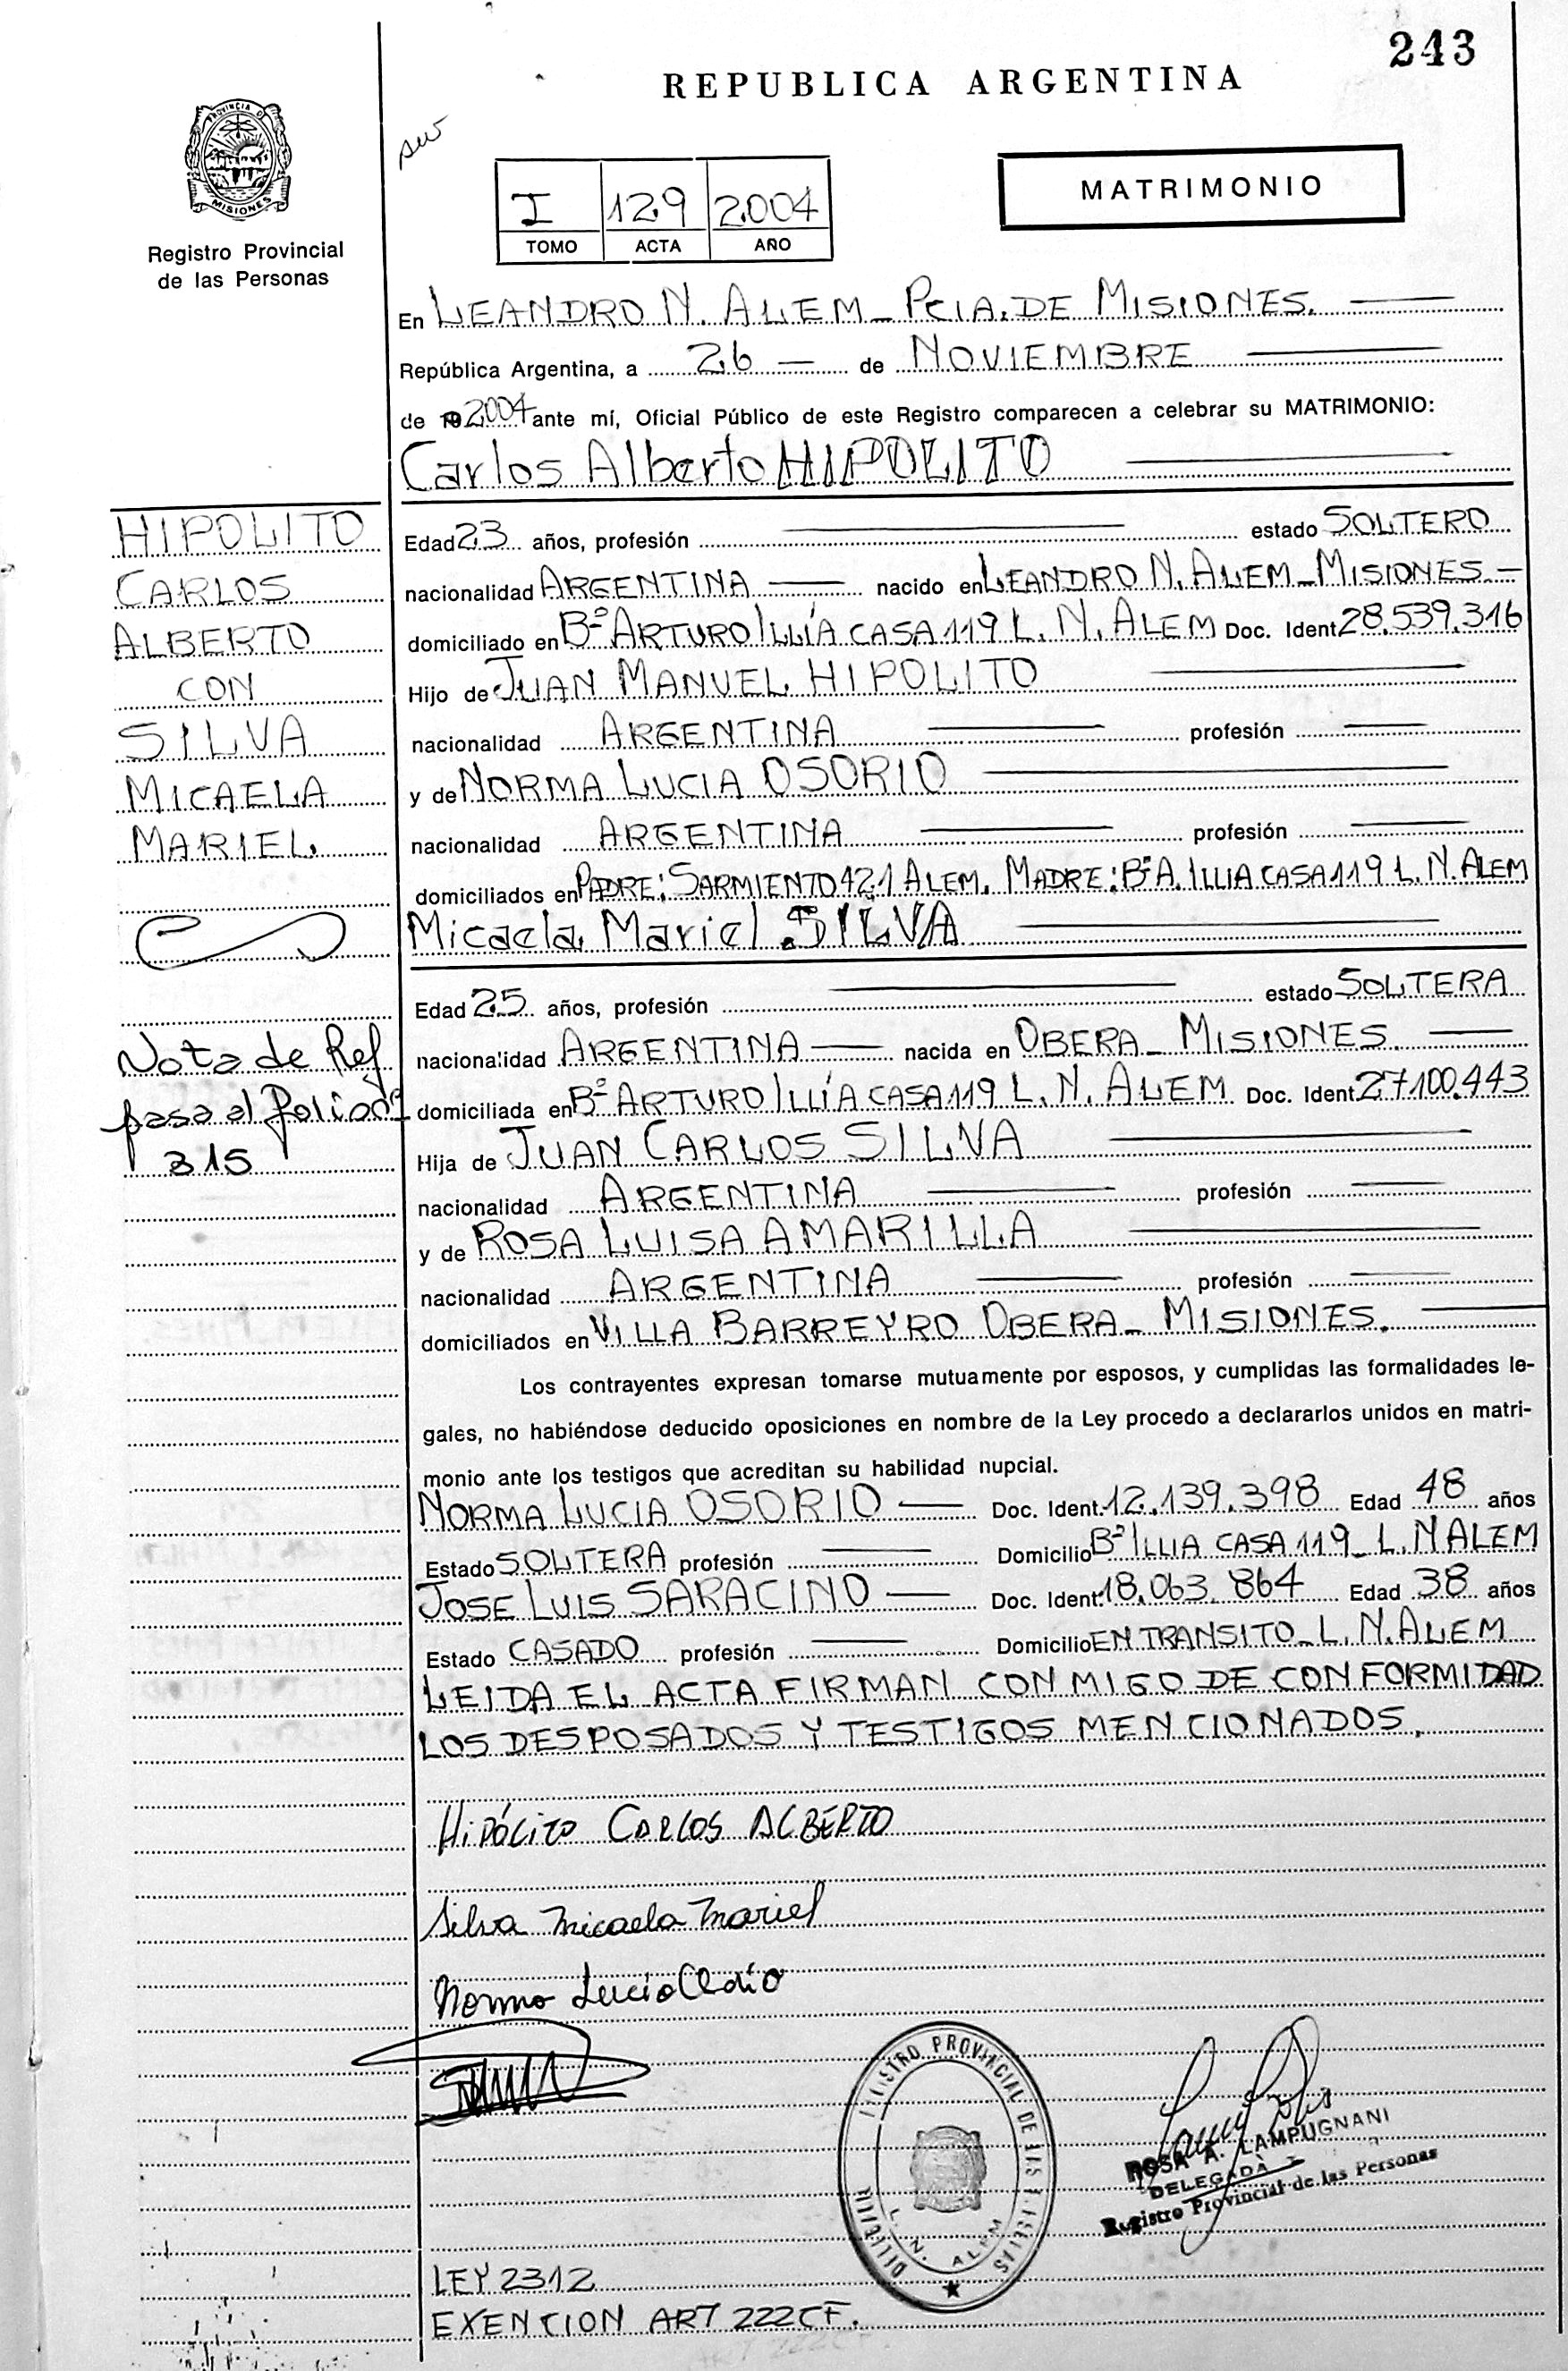 243
REPUBLICA ARGENTINA
PROVINCIA D
MISIONES
Registro Provincial
de las Personas
I 129 2004
TOMO ACTA AÑO
MATRIMONIO
En LEANDRO N. ALEM - PCIA. DE MISIONES.
República Argentina, a 26 — de NOVIEMBRE
de 2004 ante mí, Oficial Público de este Registro comparecen a celebrar su MATRIMONIO:
Carlos Alberto HIPOLITO
HIPOLITO
CARLOS
ALBERTO
CON
SILVA
MICAELA
MARIEL.
Edad 23 años, profesión — estado SOLTERO
nacionalidad ARGENTINA — nacido en LEANDRO N. ALEM - MISIONES -
domiciliado en Bº ARTURO ILLÍA CASA 119 L. N. ALEM Doc. Ident 28.539.316
Hijo de JUAN MANUEL HIPOLITO
nacionalidad ARGENTINA — profesión —
y de NORMA LUCIA OSORIO
nacionalidad ARGENTINA — profesión —
domiciliados en PADRE: SARMIENTO 421 ALEM. MADRE: Bº A. ILLIA CASA 119 L. N. ALEM
Micaela Mariel SILVA
Edad 25 años, profesión — estado SOLTERA
nacionalidad ARGENTINA — nacida en OBERA - MISIONES. —
domiciliada en Bº ARTURO ILLÍA CASA 119 L. N. ALEM Doc. Ident. 27.100.443
Hija de JUAN CARLOS SILVA
nacionalidad ARGENTINA — profesión —
y de ROSA LUISA AMARILLA
nacionalidad ARGENTINA — profesión —
domiciliados en VILLA BARREYRO OBERA - MISIONES. —
Nota de Ref
pasa al folio nº
315
Los contrayentes expresan tomarse mutuamente por esposos, y cumplidas las formalidades le-
gales, no habiéndose deducido oposiciones en nombre de la Ley procedo a declararlos unidos en matri-
monio ante los testigos que acreditan su habilidad nupcial.
NORMA LUCIA OSORIO — Doc. Ident. 12.139.398 Edad 48 años
Estado SOLTERA profesión — Domicilio Bº ILLIA CASA 119 - L. N ALEM
JOSE LUIS SARACINO — Doc. Ident. 18.063.864 Edad 38 años
Estado CASADO profesión — Domicilio EN TRANSITO - L. N. ALEM
LEIDA EL ACTA FIRMAN CONMIGO DE CONFORMIDAD
LOS DESPOSADOS Y TESTIGOS MENCIONADOS.
HIPÓLITO CARLOS ALBERTO
Silva Micaela Mariel
Norma Lucia
REGISTRO PROVINCIAL DE LAS
L. N. ALEM
ROSA A. LAMPUGNANI
DELEGADA
Registro Provincial de las Personas
LEY 2312
EXENCION ART 222 CF.